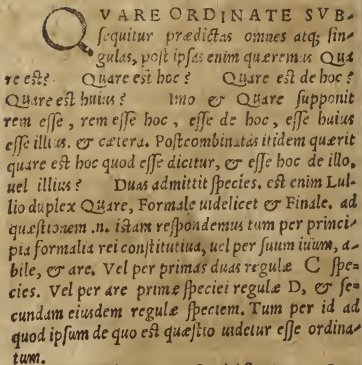 QVARE ORDINATE SVB-
sequitur prædictas omnes atq; sin-
gulas, post ipsas enim quæremus Qua
re est? Quare est hoc? Quare est de hoc?
Quare est huius? Imo & Quare supponit
rem esse, rem esse hoc, esse de hoc, esse huius
esse illius. & cætera. Postcombinatas itidem quærit
quare est hoc quod esse dicitur, & esse hoc de illo,
uel illius? Duas admittit species. est enim Lul-
lio duplex Quare, Formale uidelicet & Finale. ad
quæstionem .n. istam respondemus tum per princi-
pia formalia rei constitutiua, uel per suum iuum, a-
bile, & are. Vel per primas duas regulæ C spe=
cies. Vel per are primæ speciei regulæ D, & se=
cundam eiusdem regulæ speciem. Tum per id ad
quod ipsum de quo est quæstio uidetur esse ordina-
tum.